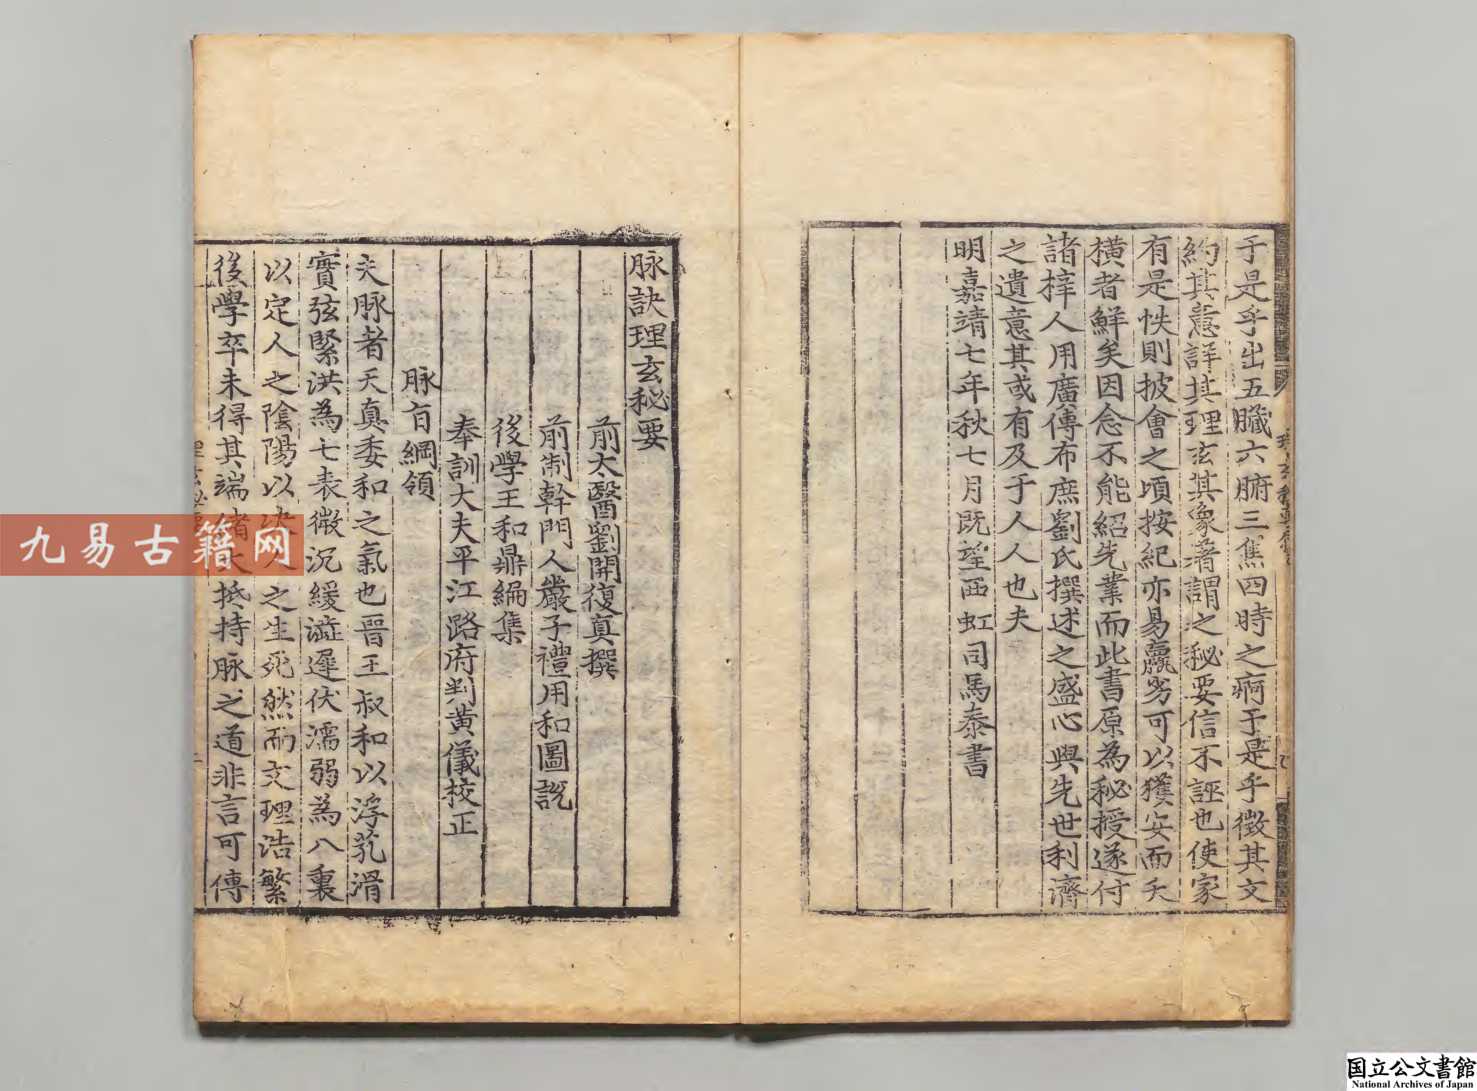 于是乎出五臟六腑三焦四時之痾于是乎徵其文
約其意詳其理玄其象著謂之秘要信不誣也使家
有是帙則披會之頃按紀亦易羸劣可以獲安而夭
橫者鮮矣因念不能紹先業而此書原為秘授遂付
諸梓人用廣傳布庶劉氏撰述之盛心與先世利濟
之遺意其或有及于人人也夫
明嘉靖七年秋七月既望西虹司馬泰書
脉訣理玄秘要
前太醫劉開復真撰
前制幹門人嚴子禮用和圖說
後學王和鼎編集
奉訓大夫平江路府判黄儀校正
脉㫖綱領
夫脉者天真委和之氣也晉王叔和以浮芤滑
實弦緊洪為七表微沉緩澁遲伏濡弱為八裏
以定人之陰陽以决人之生死然而文理浩繁
後學卒未得其端緒大抵持脉之道非言可傳
九易古籍网
国立公文書館
National Archives of Japan